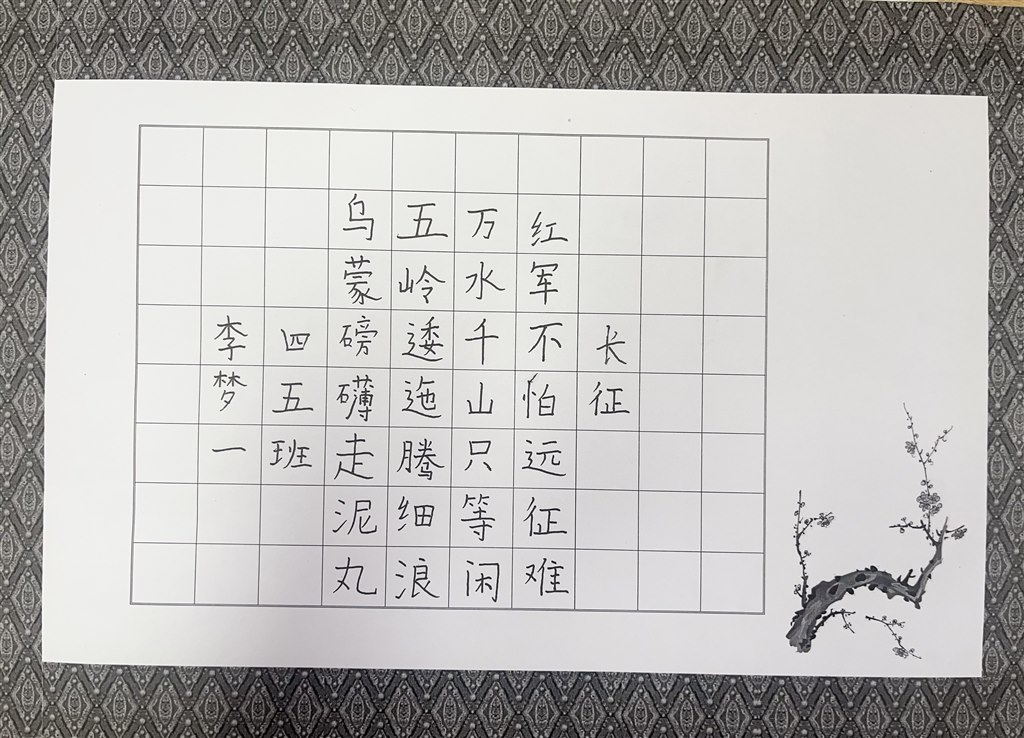 长征
红军不怕远征难
万水千山只等闲
五岭逶迤腾细浪
乌蒙磅礴走泥丸
四五班
李梦一